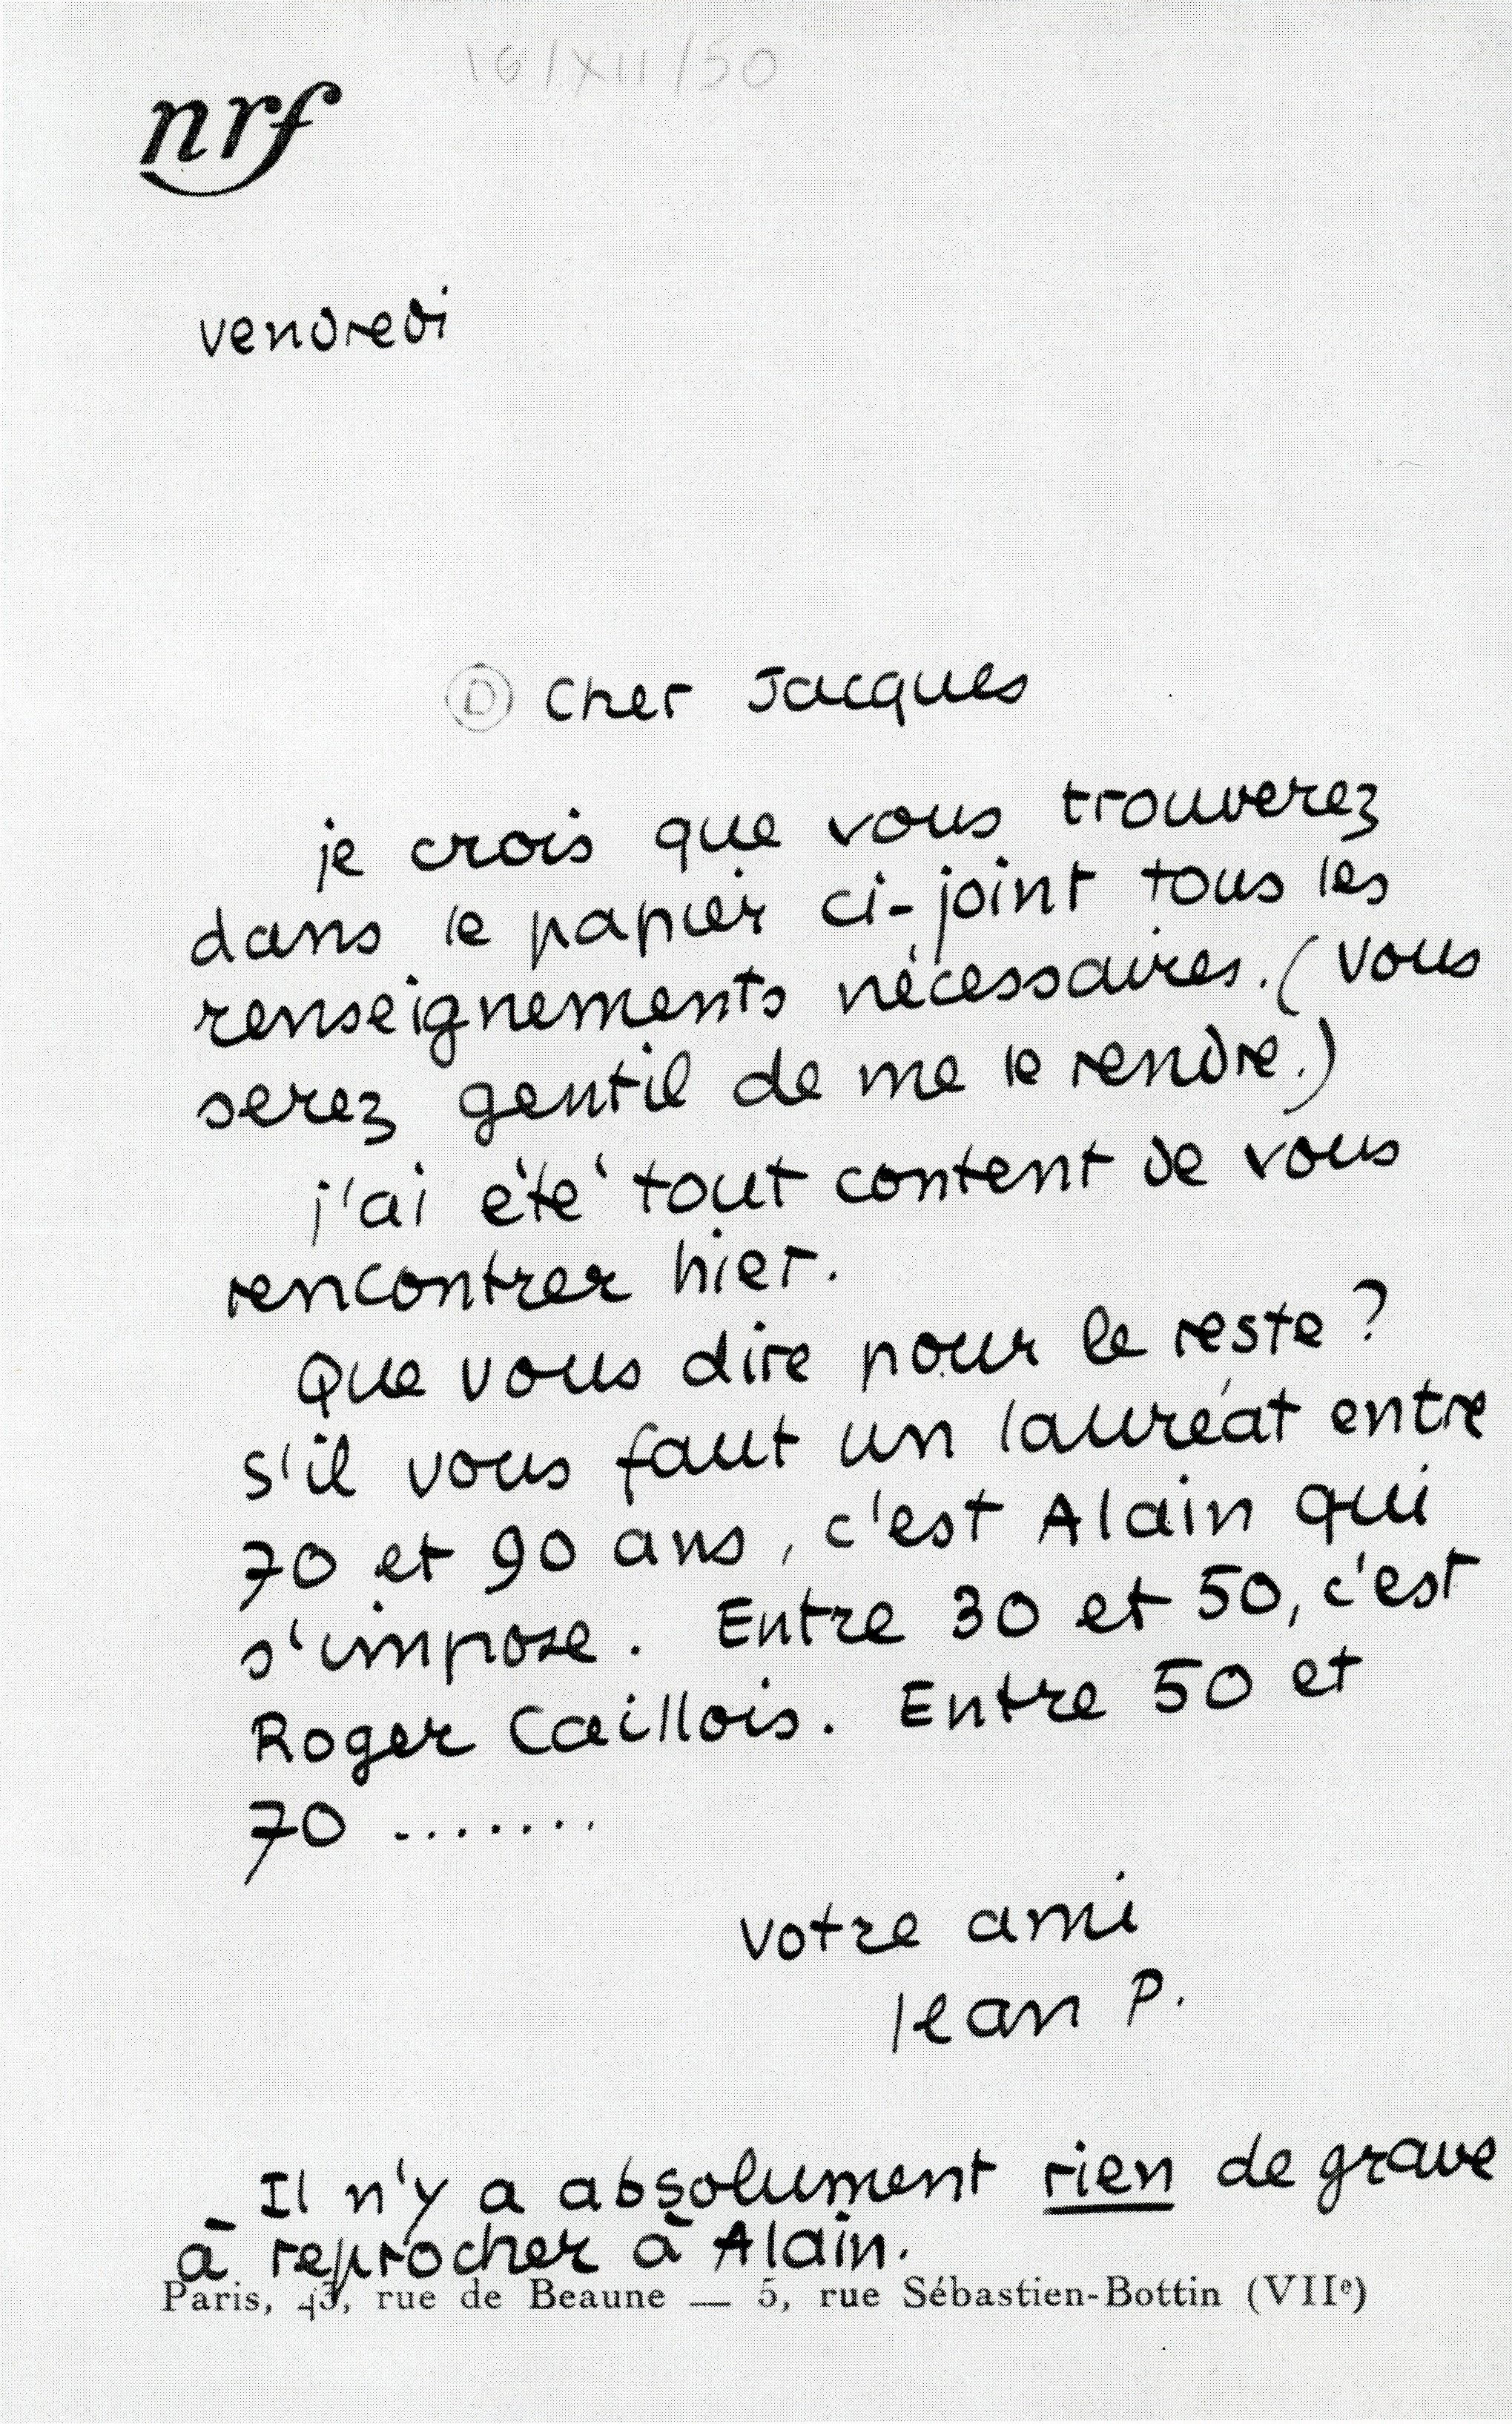 16/XII/50
nrf
vendredi
D Cher Jacques
je crois que vous trouverez
dans le papier ci-joint tous les
renseignements nécessaires. (Vous
serez gentil de me le rendre.)
j'ai été tout content de vous
rencontrer hier.
Que vous dire pour le reste ?
s'il vous faut un lauréat entre
70 et 90 ans, c'est Alain qui
s'impose. Entre 30 et 50, c'est
Roger Caillois. Entre 50 et
70 .......
votre ami
Jean P.
Il n'y a absolument rien de grave
à reprocher à Alain.
Paris, 43, rue de Beaune — 5, rue Sébastien-Bottin (VIIe)